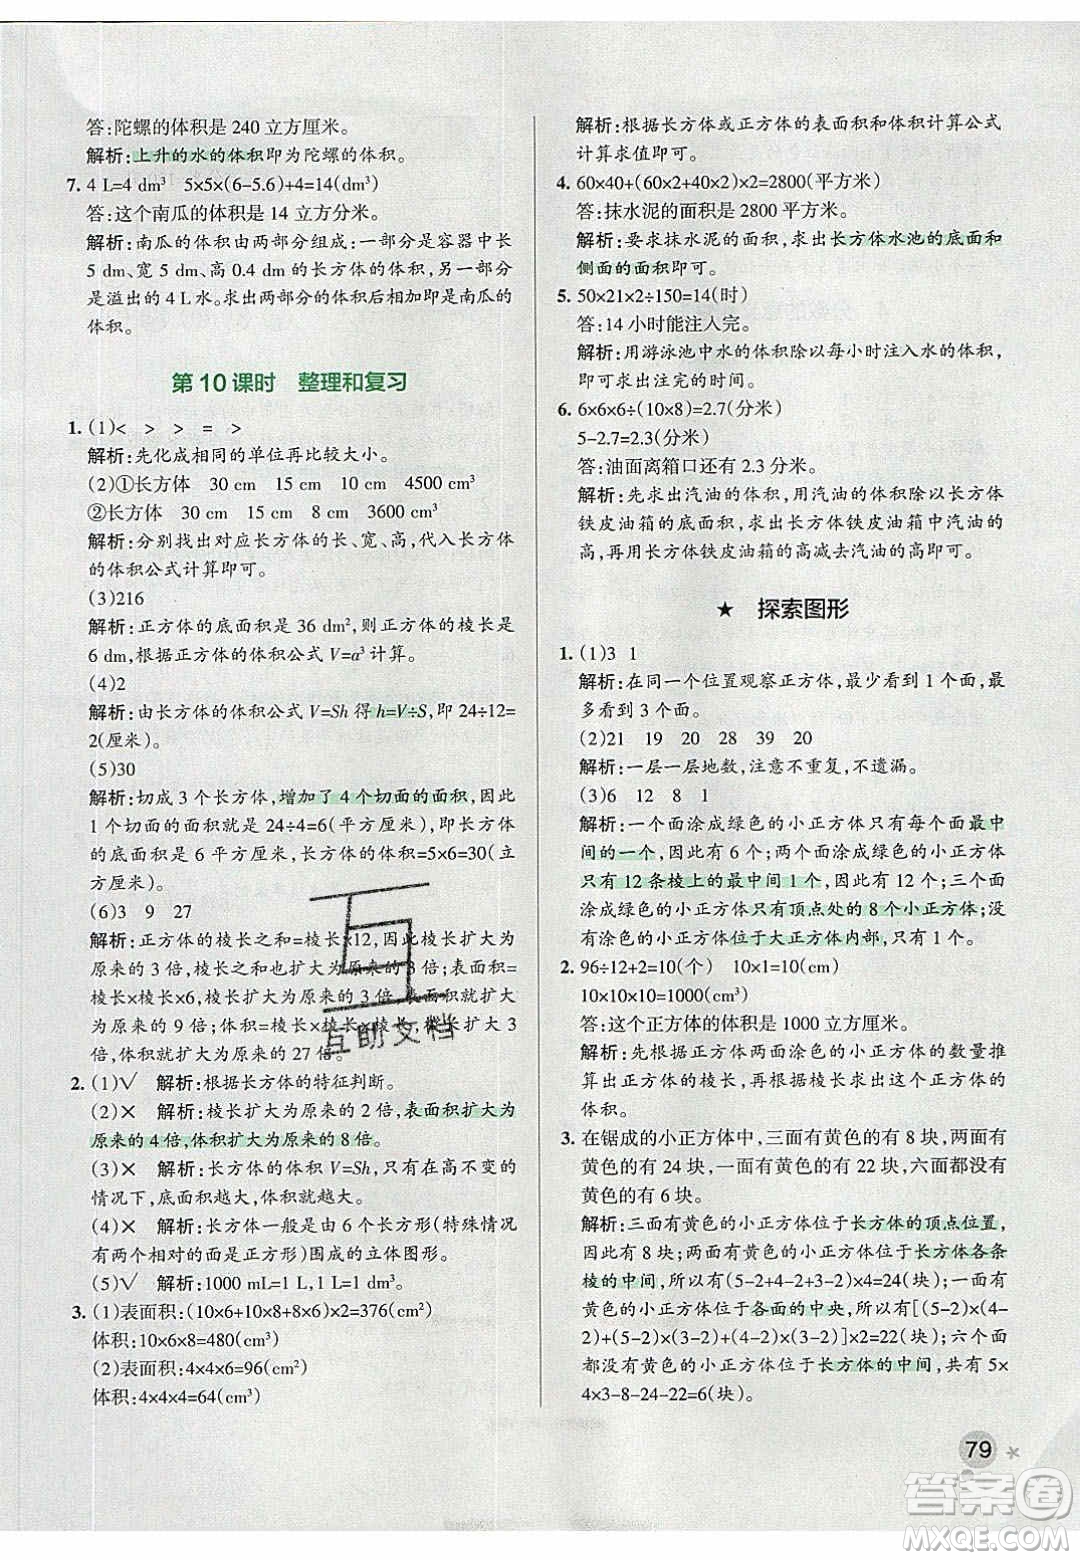 答:陀螺的体积是 240 立方厘米。
解析:上升的水的体积即为陀螺的体积。
7. 4 L=4 dm³ 5×5×(6-5.6)+4=14(dm³)
答:这个南瓜的体积是 14 立方分米。
解析:南瓜的体积由两部分组成:一部分是容器中长
5 dm、宽 5 dm、高 0.4 dm 的长方体的体积,另一部分
是溢出的 4 L 水。求出两部分的体积后相加即是南瓜的
体积。
第 10 课时 整理和复习
1. (1)< > > = >
解析:先化成相同的单位再比较大小。
(2)①长方体 30 cm 15 cm 10 cm 4500 cm³
②长方体 30 cm 15 cm 8 cm 3600 cm³
解析:分别找出对应长方体的长、宽、高,代入长方体
的体积公式计算即可。
(3)216
解析:正方体的底面积是 36 dm²,则正方体的棱长是
6 dm,根据正方体的体积公式 V=a³ 计算。
(4)2
解析:由长方体的体积公式 V=Sh 得 h=V÷S,即 24÷12=
2(厘米)。
(5)30
解析:切成 3 个长方体,增加了 4 个切面的面积,因此
1 个切面的面积就是 24÷4=6(平方厘米),即长方体
的底面积是 6 平方厘米,长方体的体积=5×6=30(立
方厘米)。
(6)3 9 27
解析:正方体的棱长之和=棱长×12,因此棱长扩大为
原来的 3 倍,棱长之和也扩大为原来的 3 倍;表面积=
棱长×棱长×6,因此棱长扩大为原来的 3 倍,表面积扩大
为原来的 9 倍;体积=棱长×棱长×棱长,棱长扩大 3
倍,体积扩大为原来的 27 倍。
2. (1)√ 解析:根据长方体的特征判断。
(2)× 解析:棱长扩大为原来的 2 倍,表面积扩大为
原来的 4 倍,体积扩大为原来的 8 倍。
(3)× 解析:长方体的体积 V=Sh,在高不变的
情况下,底面积越大,体积就越大。
(4)× 解析:长方体一般是由 6 个长方形(特殊情况
有两个相对的面是正方形)围成的立体图形。
(5)√ 解析:1000 mL=1 L,1 L=1 dm³。
3. (1)表面积:(10×6+10×8+8×6)×2=376(cm²)
体积:10×6×8=480(cm³)
(2)表面积:4×4×6=96(cm²)
体积:4×4×4=64(cm³)
解析:根据长方体或正方体的表面积和体积计算公式
计算求值即可。
4. 60×40+(60×2+40×2)×2=2800(平方米)
答:抹水泥的面积是 2800 平方米。
解析:要求抹水泥的面积,求出长方体水池的底面和
侧面的面积即可。
5. 50×21×2÷150=14(时)
答:14 小时能注入完。
解析:用游泳池中水的体积除以每小时注入水的体积,
即可求出注完的时间。
6. 6×6×6÷(10×8)=2.7(分米)
5-2.7=2.3(分米)
答:油面离箱口还有 2.3 分米。
解析:先求出汽油的体积,用汽油的体积除以长方体
铁皮油箱的底面积,求出长方体铁皮油箱中汽油的
高,再用长方体铁皮油箱的高减去汽油的高即可。
★ 探索图形
1. (1)3 1
解析:在同一个位置观察正方体,最少看到 1 个面,最
多看到 3 个面。
(2)21 19 20 39 20
解析:一层一层地数,注意不重复,不遗漏。
(3)6 12 8 1
解析:一个面涂成绿色的小正方体只有每个面最中
间的一个,因此有 6 个;两个面涂成绿色的小正方体
只有 12 条棱上的最中间 1 个,所以有 12 个;三个面
涂成绿色的小正方体只有顶点处的 8 个小正方体;没
有涂色的小正方体位于大正方体内部,只有 1 个。
2. 96÷12+2=10(个) 10×1=10(cm)
10×10×10=1000(cm³)
答:这个正方体的体积是 1000 立方厘米。
解析:先根据正方体两面涂色的小正方体的数量推
算出正方体的棱长,再根据棱长求出这个正方体的
体积。
3. 在锯成的小正方体中,三面有黄色的有 8 块,两面有
黄色的有 24 块,一面有黄色的有 22 块,六面都没有
黄色的有 6 块。
解析:三面有黄色的小正方体位于长方体的顶点位置,
因此有 8 块;两面有黄色的小正方体位于长方体各条
棱的中间,所以有(5-2+4-2+3-2)×4=24(块);一面
有黄色的小正方体位于各面的中央,所以有[(5-2)×(4-
2)+(5-2)×(3-2)+(4-2)×(3-2)]×2=22(块);六个面
都没有黄色的小正方体位于长方体的中间,共有 5×
4×3-8-24-22=6(块)。
79
互助文档
答案圈
MXQE.COM